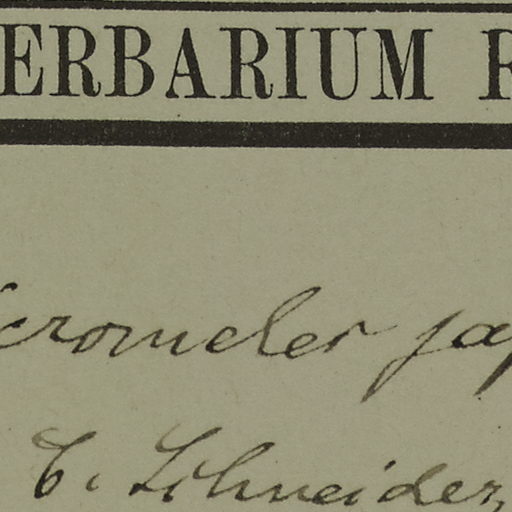 ERBARIUM R
cromeles jap
C. Schneider,